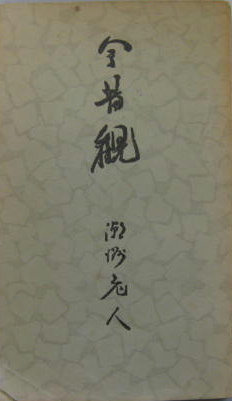 今昔観
潮州老人